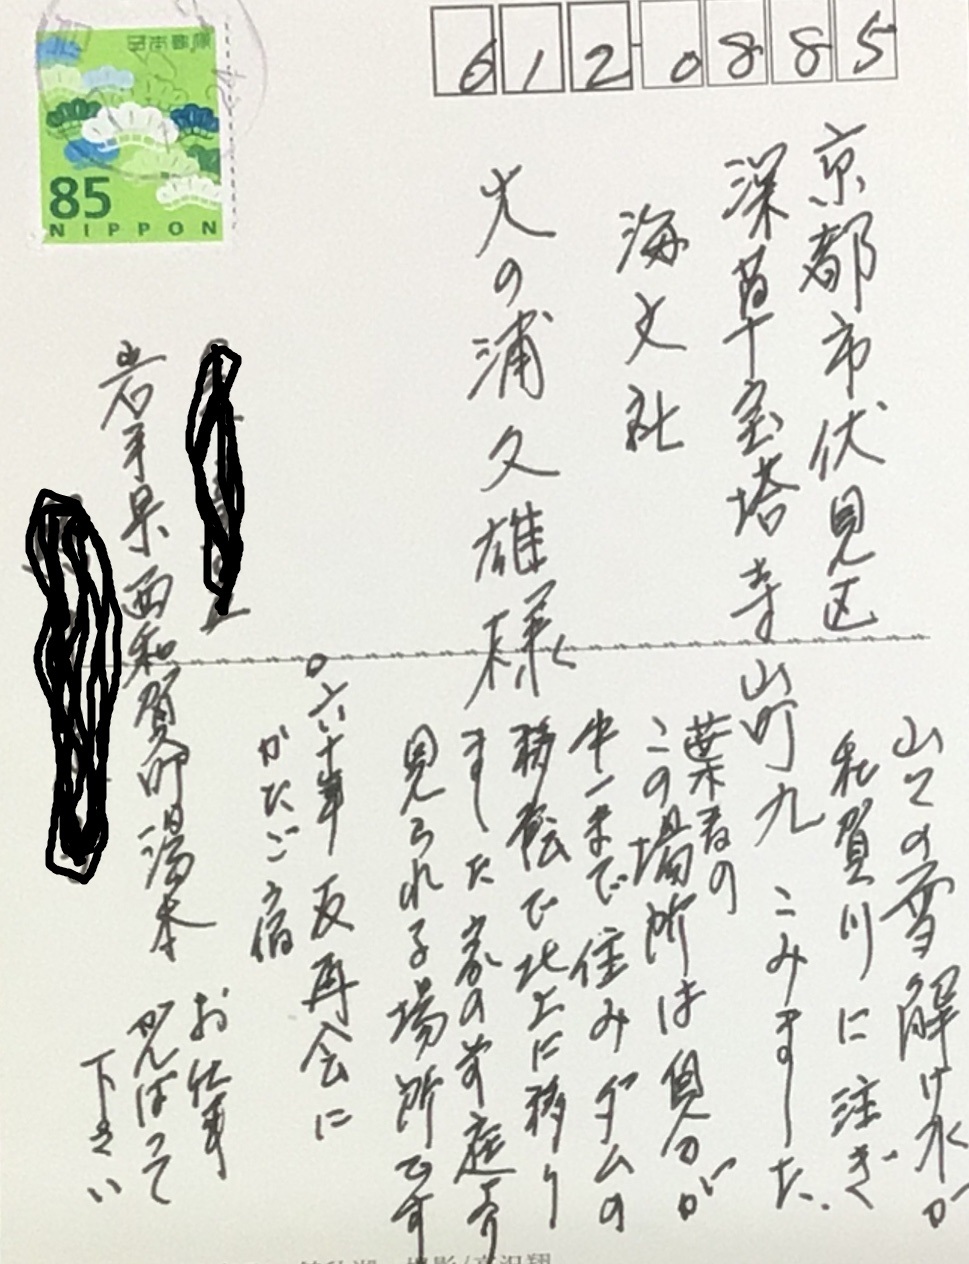 612-0885
京都市伏見区
深草宝塔寺
山町九
海文社
大の浦久雄様
85
NIPPON
岩手県西和賀町湯本
山々の雪解け水が
和賀川に注ぎ
こみました
葉春の
この場所は自分が
牛二まで住みダムの
移転で北上に移り
ました 家の前庭が
見られる場所です
。六十年 友再会に
かたご宿
お仕事
がんばって
下さい